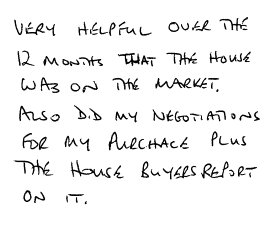 VERY HELPFUL OVER THE
12 MONTHS THAT THE HOUSE
WAS ON THE MARKET.
ALSO DID MY NEGOTIATIONS
FOR MY PURCHACE PLUS
THE HOUSE BUYERS REPORT
ON IT.